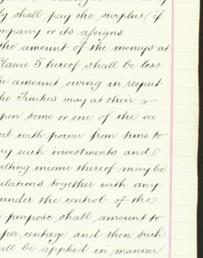 ly shall pay the surplus (if
mpany or its assigns
the amount of the moneys at
Clause 5 hereof shall be less
he amount owing in respect
he Trustees may at their
upon some or one of the se
ed with power from time to
ry such investments and
ulting income thereof may be
ulations together with any
under the control of the
purpose shall amount to
per centage and then such
all be applied in manner